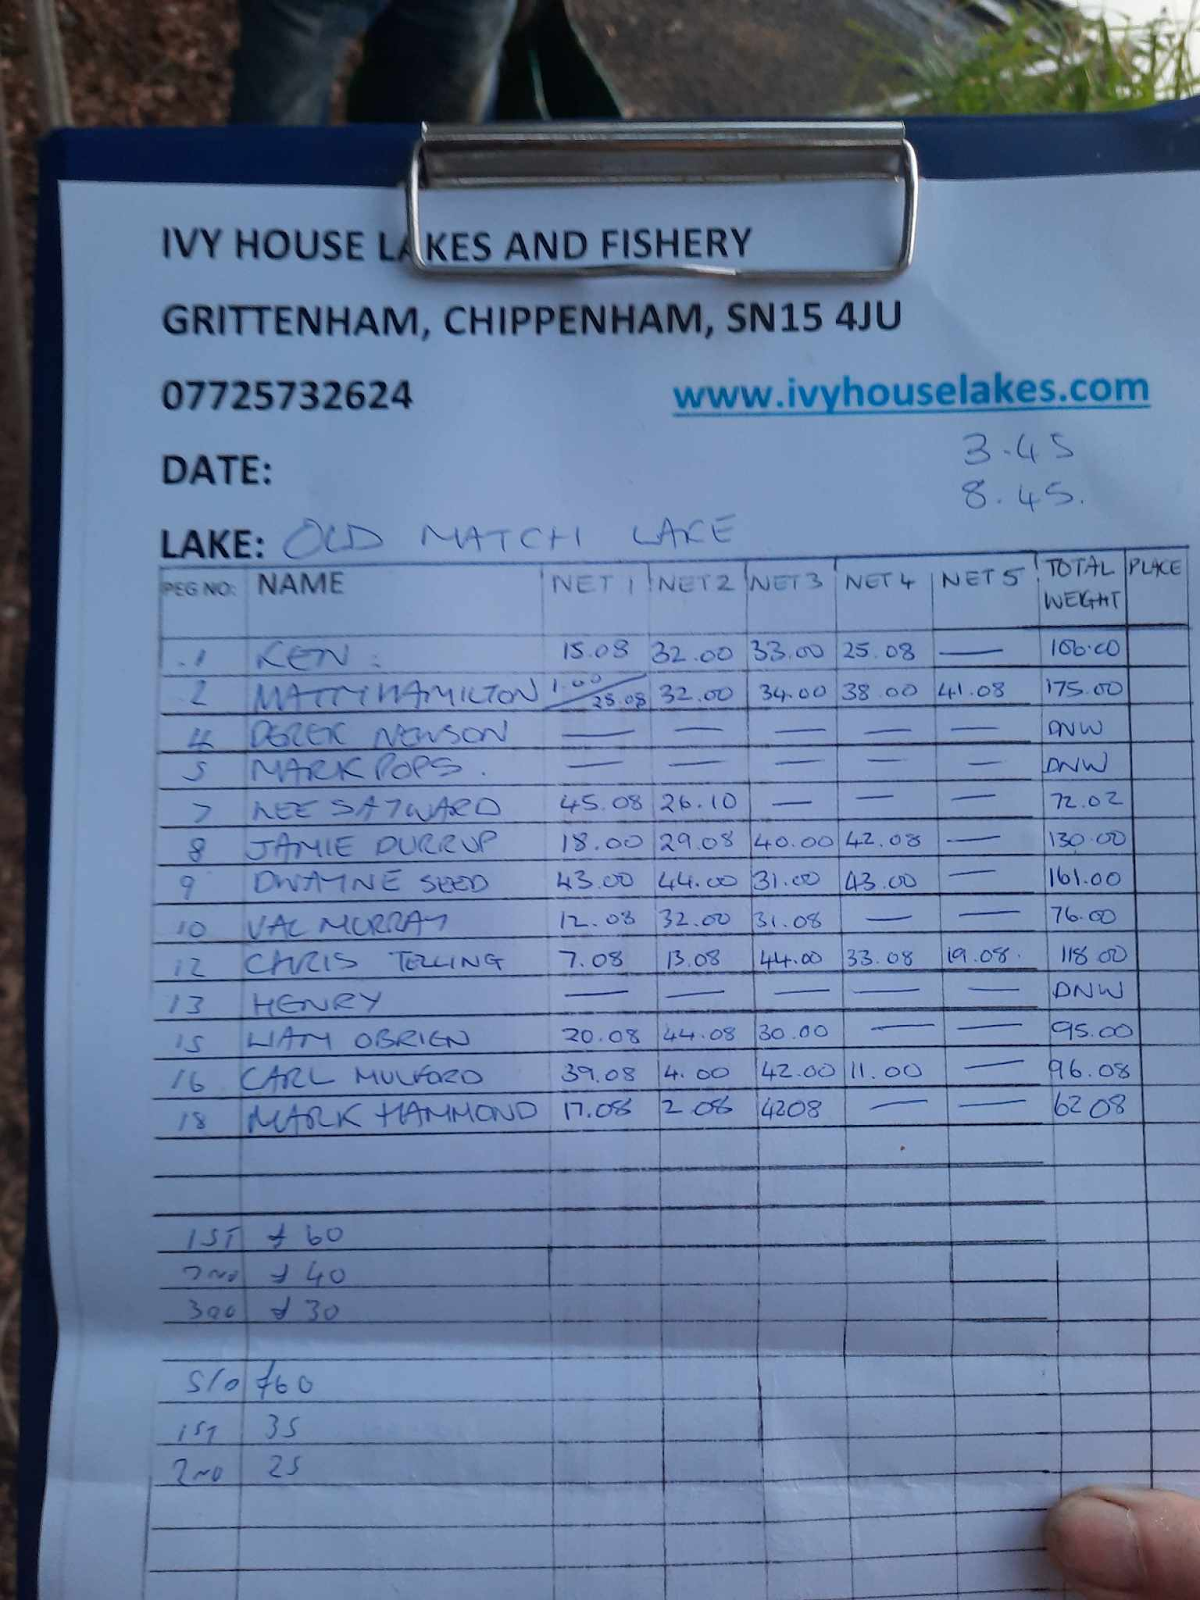 IVY HOUSE LAKES AND FISHERY
GRITTENHAM, CHIPPENHAM, SN15 4JU
07725732624 www.ivyhouselakes.com
3.45
DATE: 8.45.
LAKE: OLD MATCH LAKE
PEG NO: NAME NET 1 NET 2 NET 3 NET 4 NET 5 TOTAL WEIGHT PLACE
1 KEN: 15.08 32.00 33.00 25.08 — 106.00
2 MATTY HAMILTON 1.00/28.08 32.00 34.00 38.00 41.08 175.00
4 DEREK NEWSON — — — — — DNW
5 MARK POPS. — — — — — DNW
7 LEE SAYWARD 45.08 26.10 — — — 72.02
8 JAMIE DURRUP 18.00 29.08 40.00 42.08 — 130.00
9 DWAYNE SEED 43.00 44.00 31.00 43.00 — 161.00
10 VAL MURRAY 12.08 32.00 31.08 — — 76.00
12 CHRIS TELLING 7.08 13.08 44.00 33.08 19.08. 118 00
13 HENRY — — — — — DNW
15 LIAM OBRIEN 20.08 44.08 30.00 — — 95.00
16 CARL MULFORD 39.08 4.00 42.00 11.00 — 96.08
18 MARK HAMMOND 17.08 2 08 4208 — — 62 08
1ST £60
2ND £40
3RD £30
S/O £60
1ST 35
2ND 25